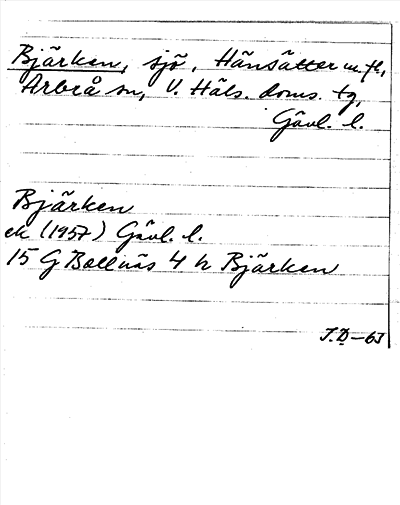 Bjärken, sjö, Hänsätter m. fl.,
Arbrå sn, V. Häls. doms. tg,
Gävl. l.
Bjärken
ek (1957) Gävl. l.
15 G Bollnäs 4 h Bjärken
J.D–63